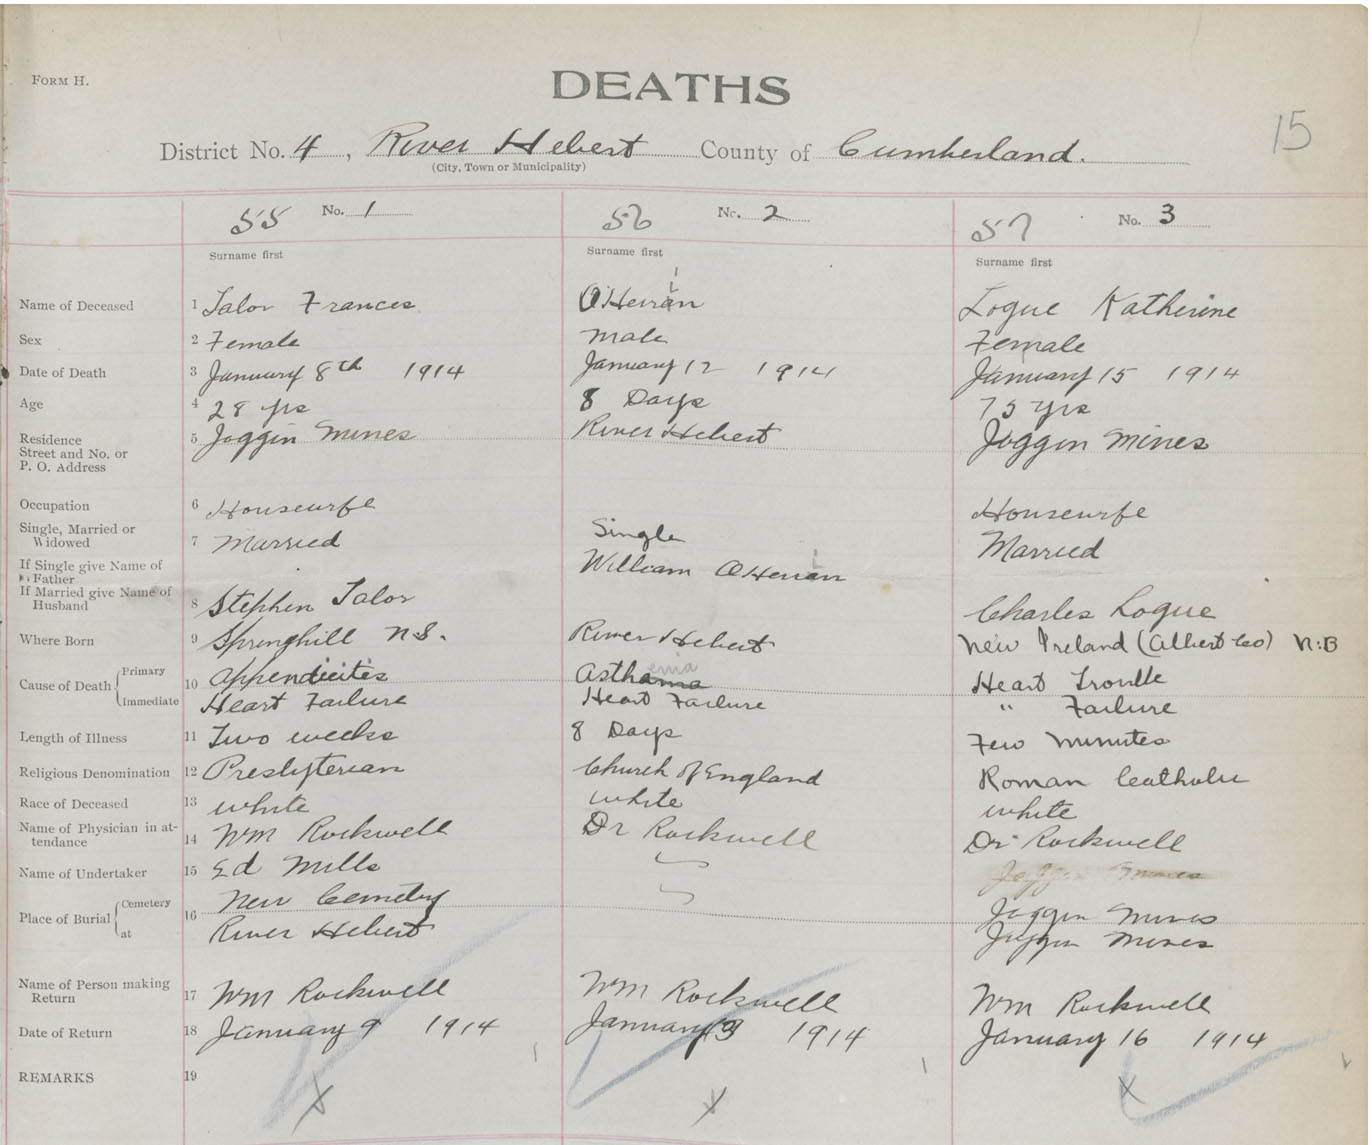 FORM H.
DEATHS
15
District No. 4, River Hebert County of Cumberland.
(City, Town or Municipality)
55 No. 1 56 No. 2 57 No. 3
Surname first Surname first Surname first
Name of Deceased 1 Talor Frances O'Heran Logue Katherine
Sex 2 Female male Female
Date of Death 3 January 8th 1914 January 12 1914 January 15 1914
Age 4 28 yrs 8 Days 75 yrs
Residence Street and No. or P. O. Address 5 Joggin Mines River Hebert Joggin Mines
Occupation 6 Housewife Housewife
Single, Married or Widowed 7 Married Single Married
If Single give Name of Father William OHeran
If Married give Name of Husband 8 Stephen Talor Charles Logue
Where Born 9 Springhill N.S. River Hebert New Ireland (Albert Co) N.B
Cause of Death Primary 10 appendicites Asthama enia Heart Trouble
Immediate Heart Failure Heart Failure " Failure
Length of Illness 11 Two weeks 8 Days Few minutes
Religious Denomination 12 Presbyterian Church of England Roman Catholic
Race of Deceased 13 white white white
Name of Physician in attendance 14 Wm Rockwell Dr Rockwell Dr Rockwell
Name of Undertaker 15 Ed Mills Joggin Mines
Place of Burial Cemetery 16 New Cemetery Joggin Mines
at River Hebert Joggin Mines
Name of Person making Return 17 Wm Rockwell Wm Rockwell Wm Rockwell
Date of Return 18 January 9 1914 January 13 1914 January 16 1914
REMARKS 19